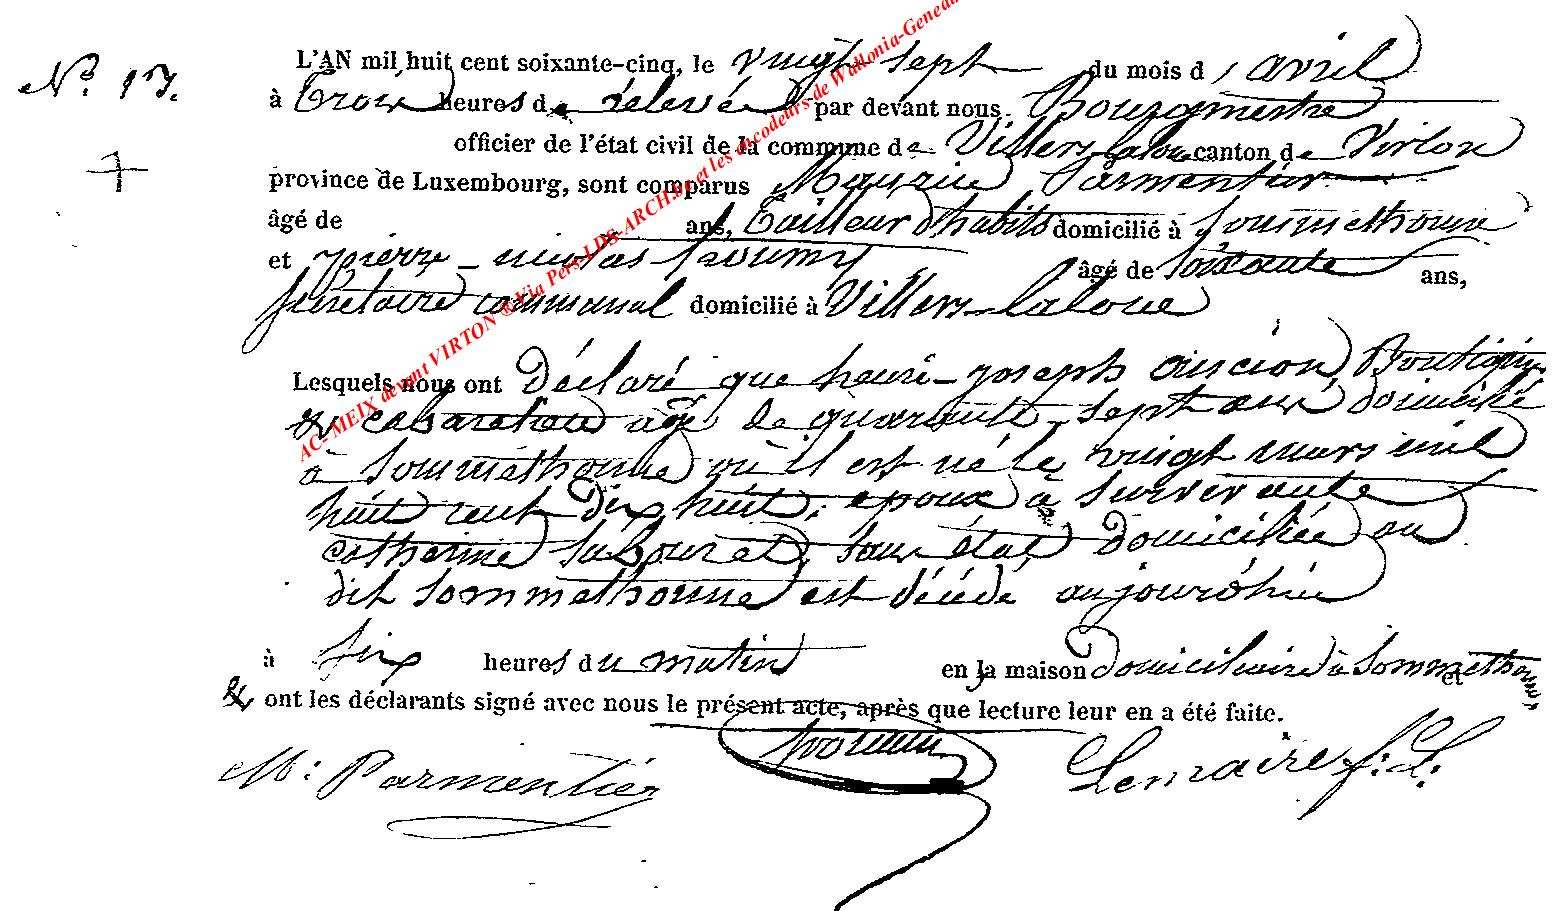 N° 17.
L'AN mil huit cent soixante-cinq, le vingt sept du mois d'avril
à Trois heures de relevée par devant nous Bourgmestre
officier de l'état civil de la commune de Villers-laloue canton de Virton
province de Luxembourg, sont comparus Maurice Parmentier
âgé de ans, Tailleur d'habits domicilié à Sommethonne
et pierre-nicolas âgé de soixante ans,
secrétaire communal domicilié à Villers-laloue
Lesquels nous ont Déclaré que henri-joseph ancion, Boutiquier
& cabaretier agé de quarante-sept ans domicilié
à Sommethonne où il est né le vingt mars mil
huit cent dix huit, epoux à Survivante
catherine , sans état, domiciliée au
dit Sommethonne est décédé aujourd'hui
à six heures du matin en la maison domiciliaire à Sommethonne et
& ont les déclarants signé avec nous le présent acte, après que lecture leur en a été faite.
M: Parmentier Lemaire f.f.
AC- MEIX devant VIRTON ® Via Pers-LDS-ARCH.be et les encodeurs de Wallonia-Genea